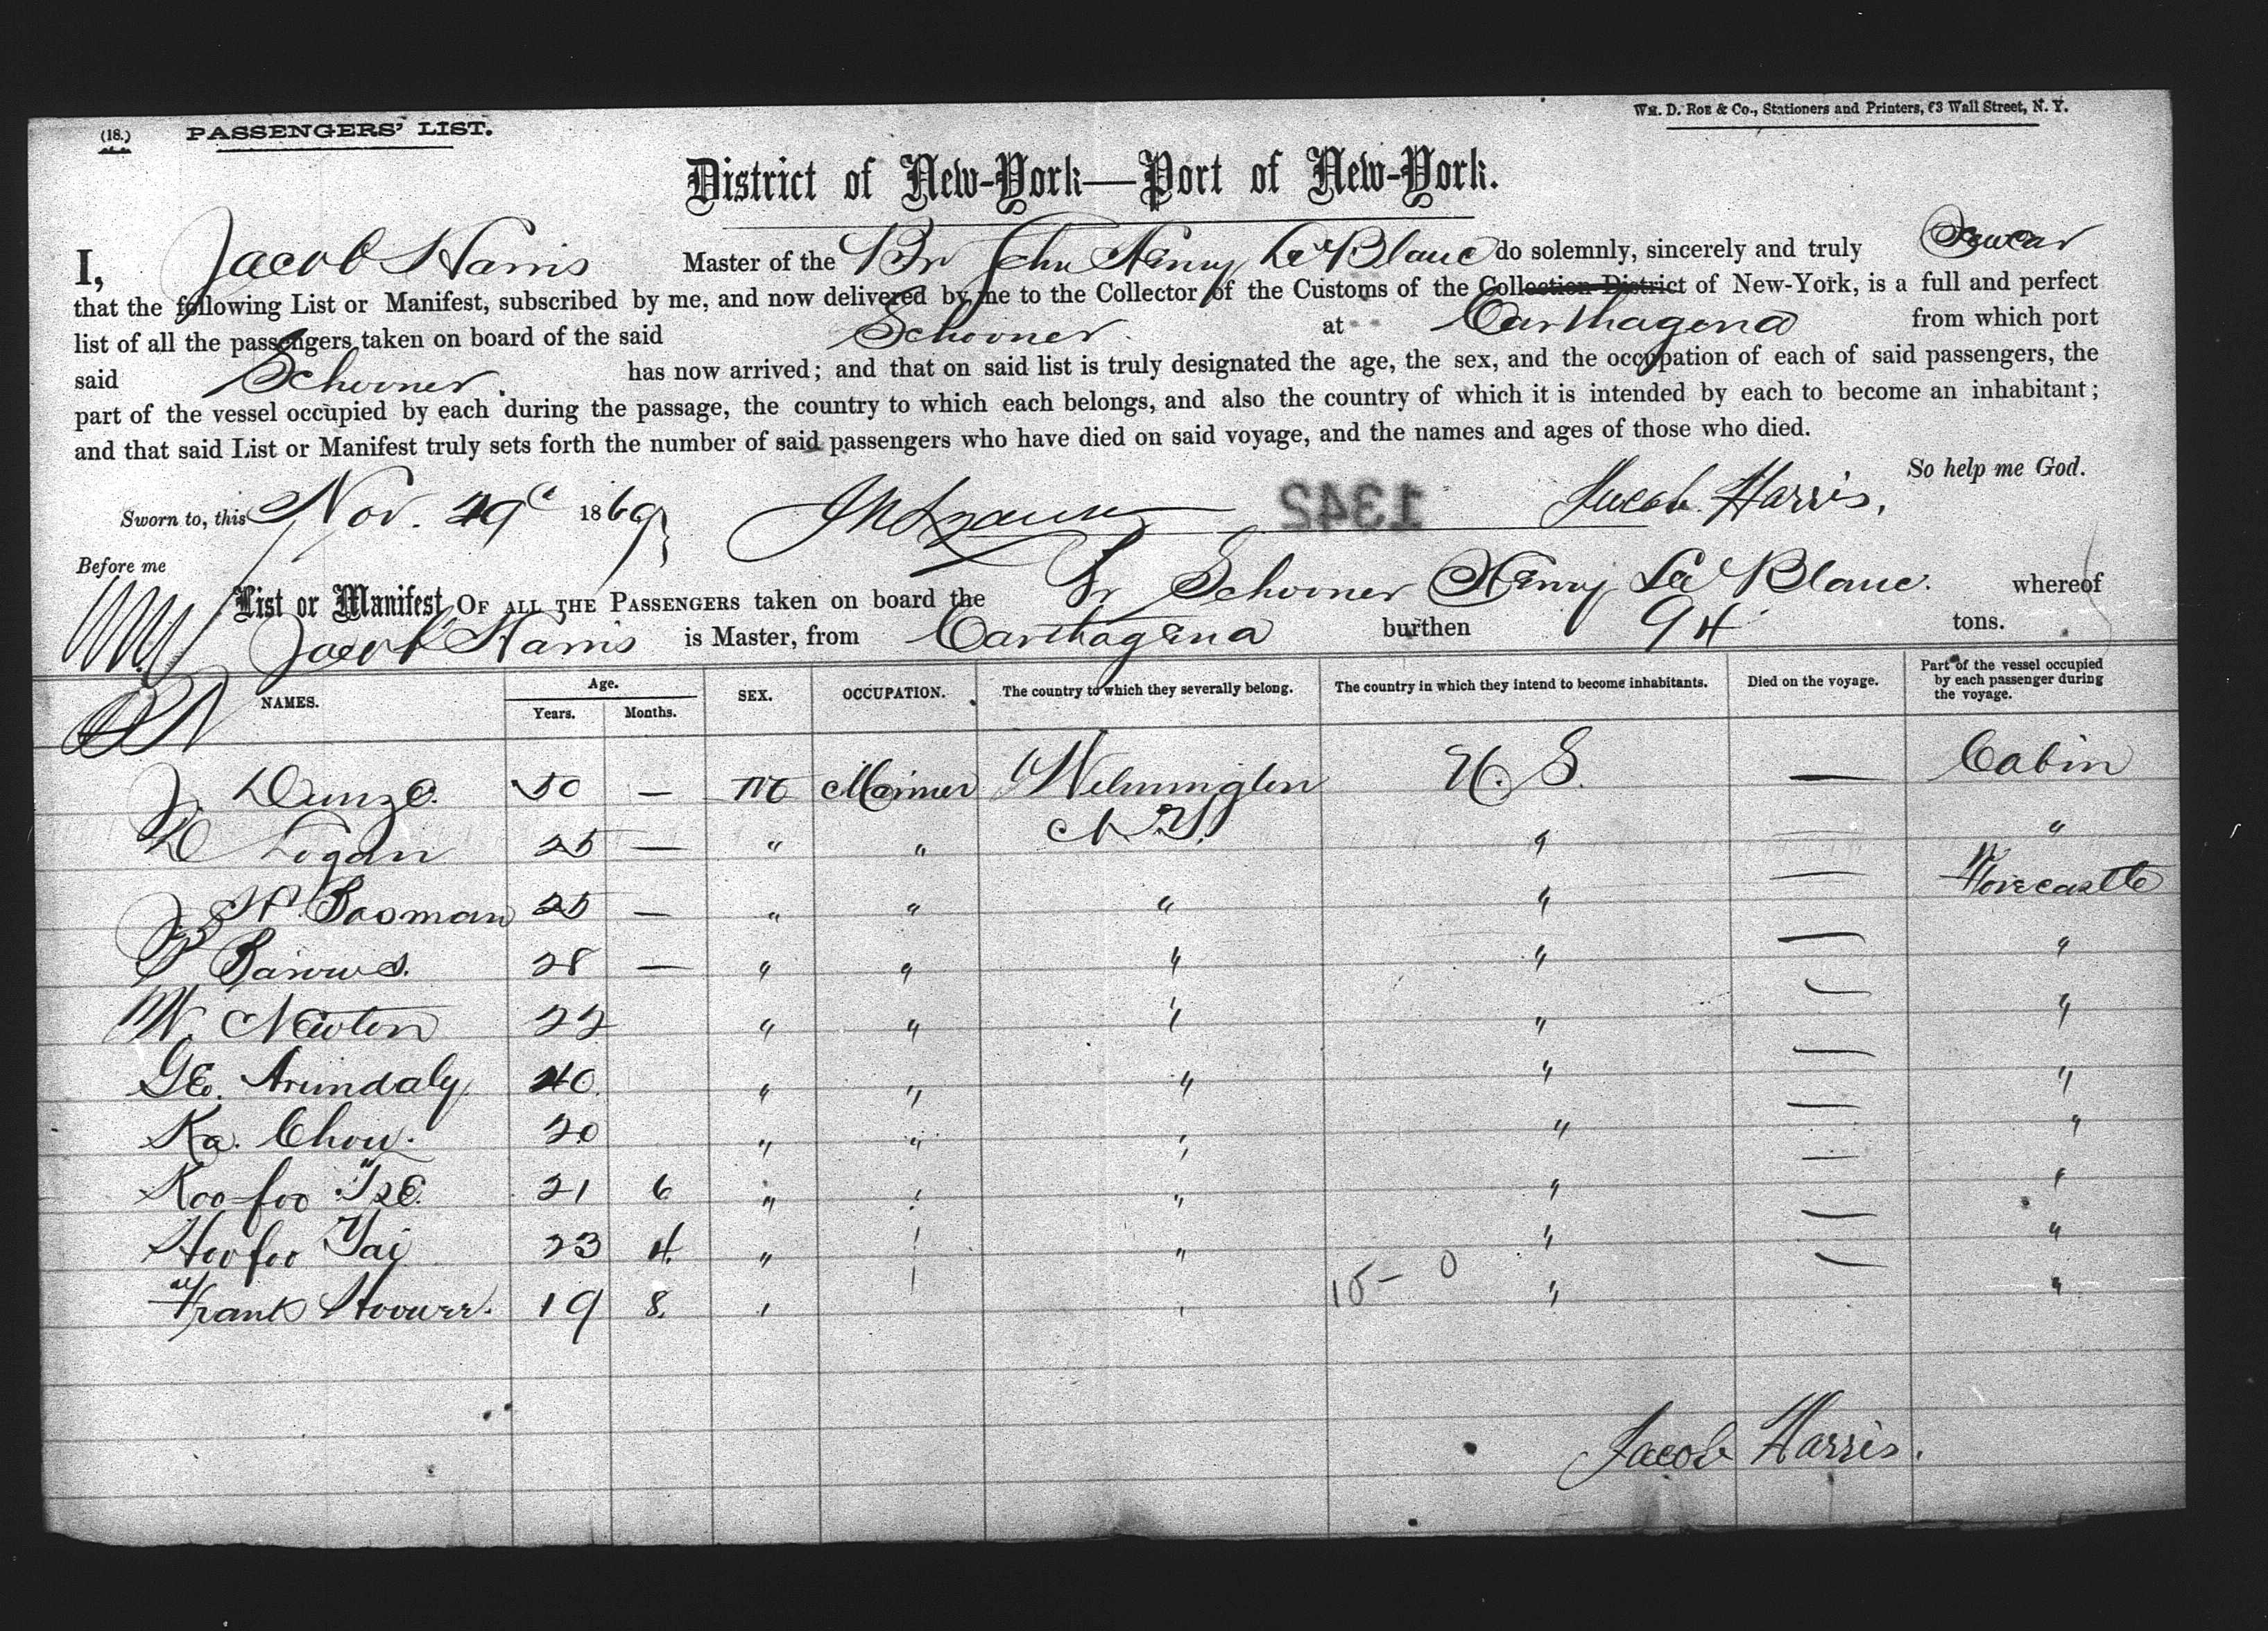 (18.) PASSENGERS' LIST.
Wm. D. Roe & Co., Stationers and Printers, 63 Wall Street, N. Y.
District of New-York—Port of New-York.
I, Jacob Harris Master of the Br John Henry Le Blanc do solemnly, sincerely and truly Swear
that the following List or Manifest, subscribed by me, and now delivered by me to the Collector of the Customs of the Collection District of New-York, is a full and perfect
list of all the passengers taken on board of the said Schooner at Carthagena from which port
said Schooner. has now arrived; and that on said list is truly designated the age, the sex, and the occupation of each of said passengers, the
part of the vessel occupied by each during the passage, the country to which each belongs, and also the country of which it is intended by each to become an inhabitant;
and that said List or Manifest truly sets forth the number of said passengers who have died on said voyage, and the names and ages of those who died.
So help me God.
Sworn to, this Nov. 29 1869 1342 Jacob Harris.
Before me
List or Manifest OF ALL THE PASSENGERS taken on board the Br Schooner Henry Le Blanc. whereof
Jacob Harris is Master, from Carthagena burthen 94 tons.
NAMES. Age. Years. Months. SEX. OCCUPATION. The country to which they severally belong. The country in which they intend to become inhabitants. Died on the voyage. Part of the vessel occupied by each passenger during the voyage.
J. 50 — M Mariner Wilmington U. S. — Cabin
D Logan 25 — " " N.Y. " — "
J. W. Booman 25 — " " " " — Forecastle
Barrows. 28 — " " " " — "
W. Newton 22 " " " " — "
Geo. Arundaly 40 " " " " — "
Ka. Chow. 20 " " " " — "
Koo foo Tze. 21 6 " " " " — "
Hoo foo Tai 23 4. " " " " — "
15- 0
Frank Hoower. 19 8. " " " " — "
Jacob Harris.